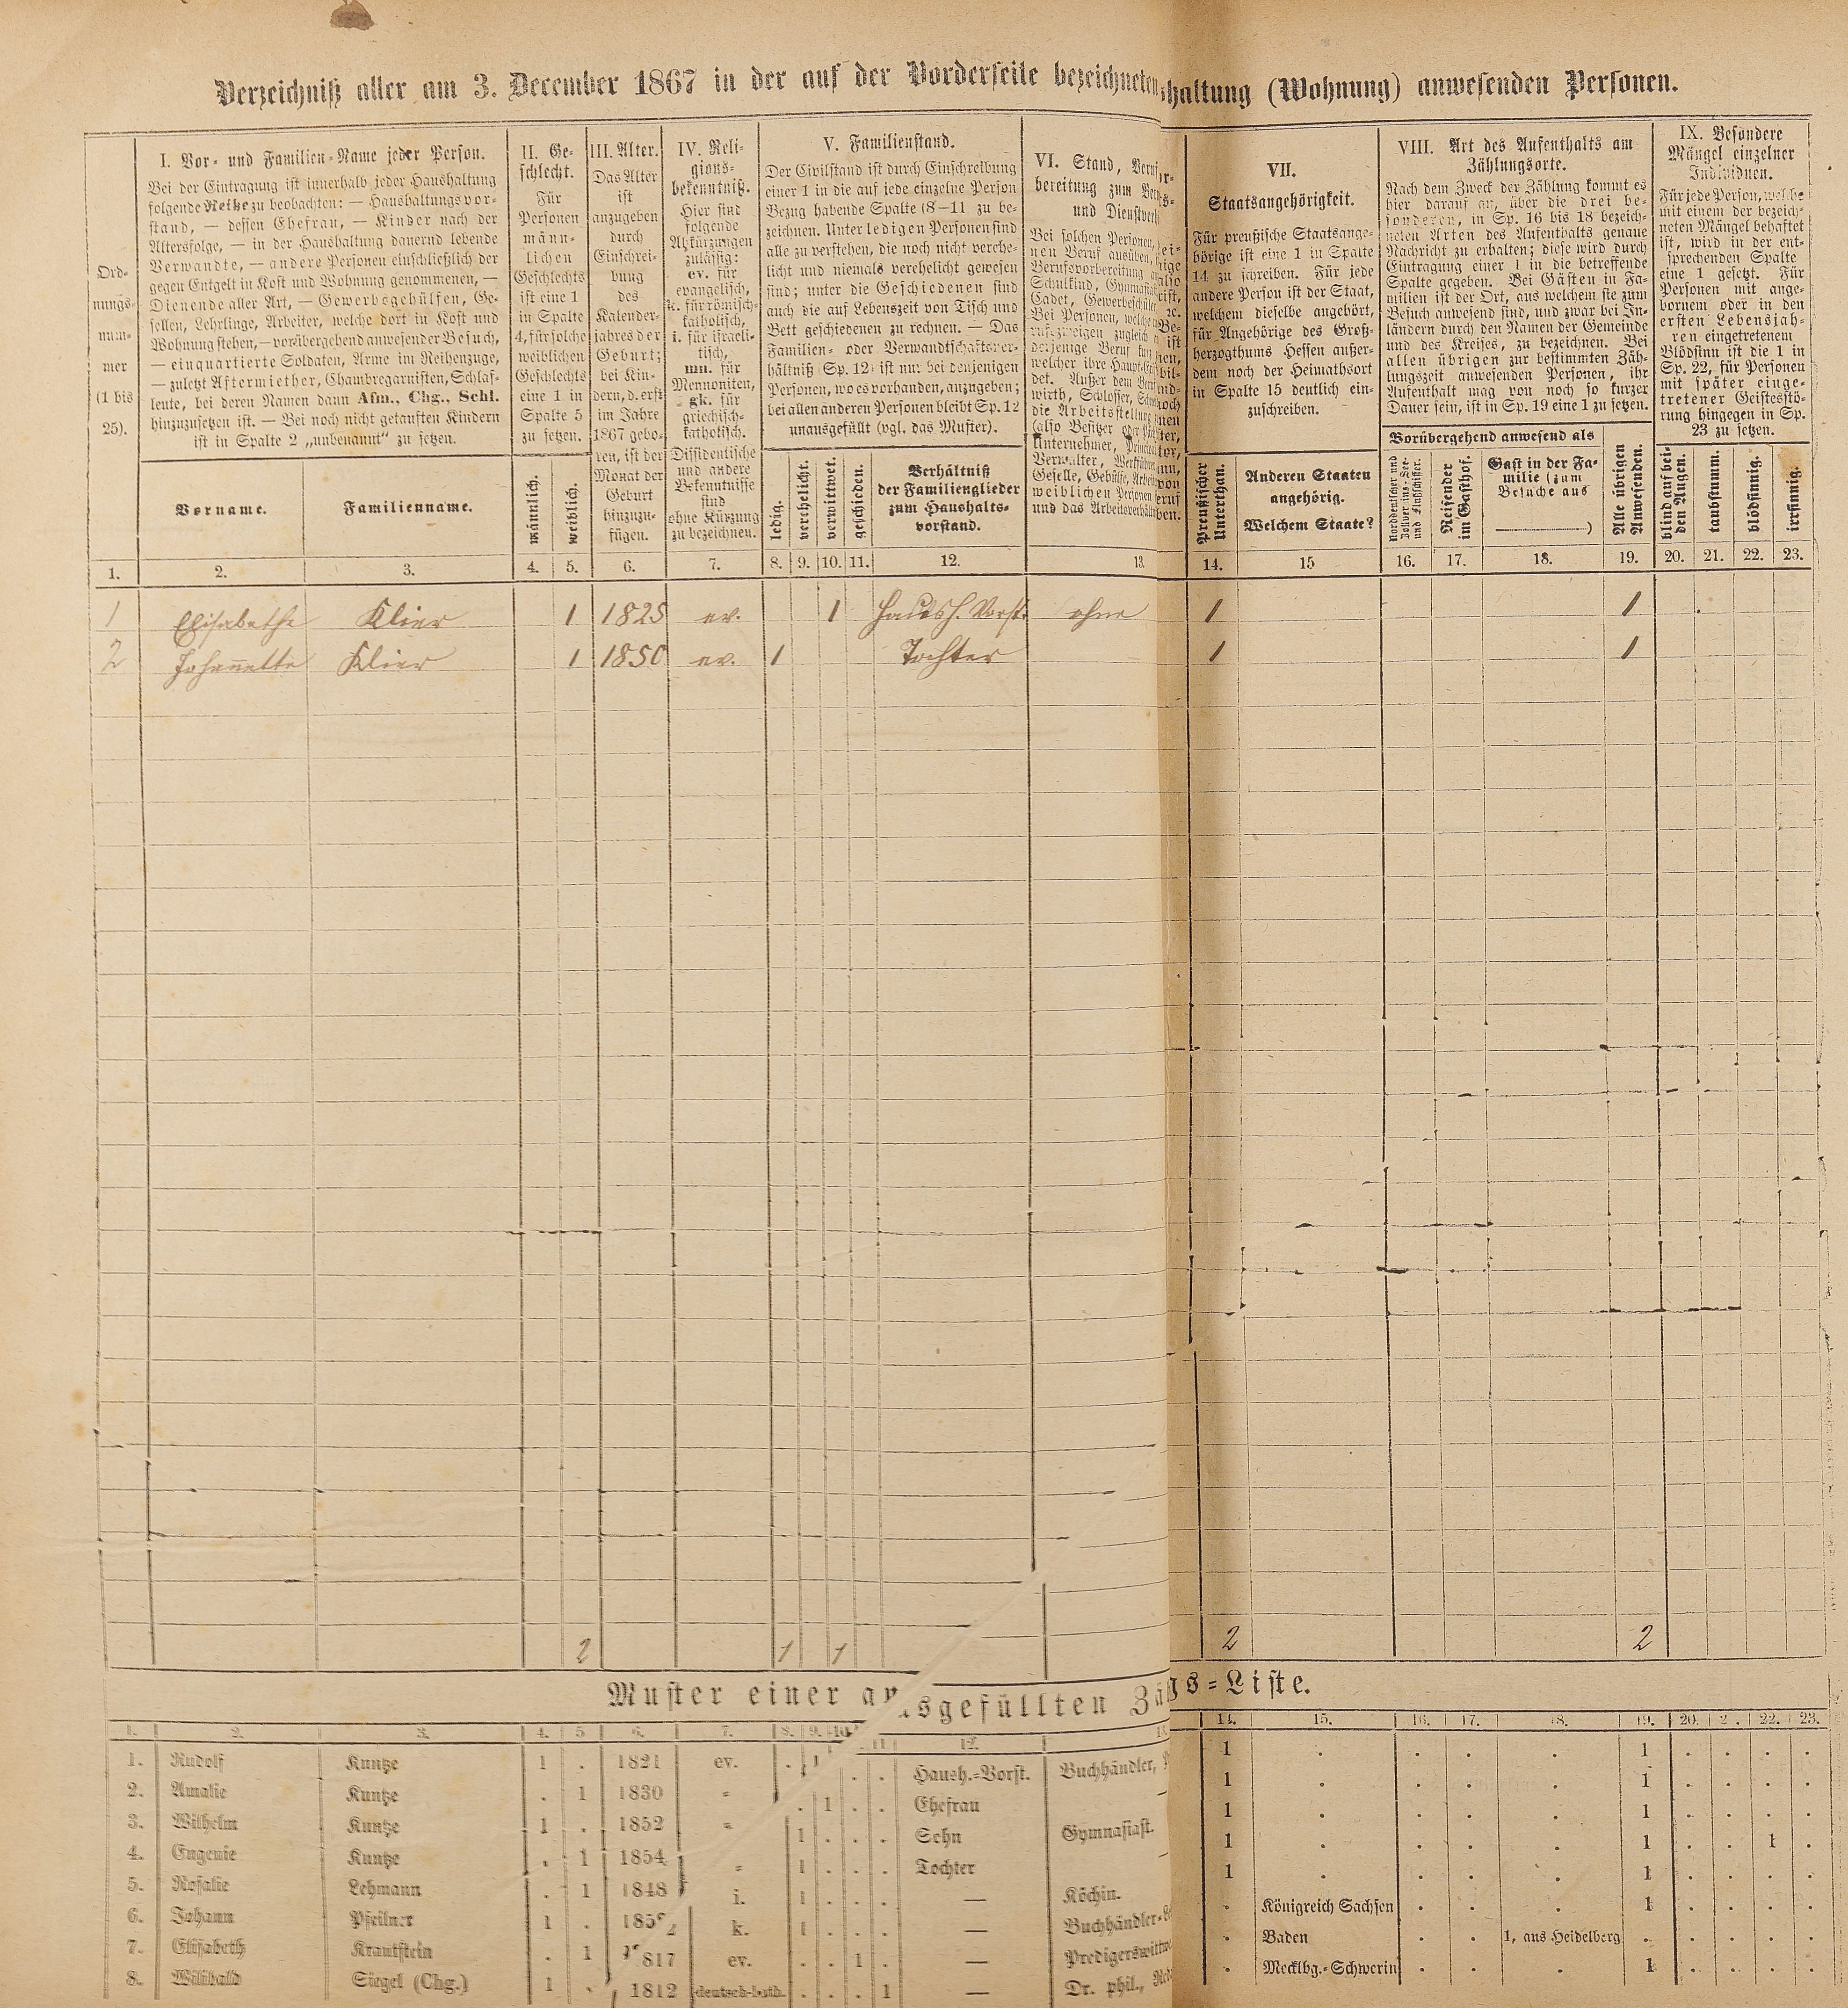 Verzeichniß aller am 3. December 1867 in der auf der Vorderseite bezeichneten
shaltung (Wohnung) anwesenden Personen.
Ord-
nungs-
num-
mer
(1 bis
25).
I. Vor- und Familien-Name jeder Person.
Bei der Eintragung ist innerhalb jeder Haushaltung
folgende Reihe zu beobachten: — Haushaltungsvor-
stand, — dessen Ehefrau, — Kinder nach der
Altersfolge, — in der Haushaltung dauernd lebende
Verwandte, — andere Personen einschließlich der
gegen Entgelt in Kost und Wohnung genommenen, —
Dienende aller Art, — Gewerbsgehülfen, Ge-
sellen, Lehrlinge, Arbeiter, welche dort in Kost und
Wohnung stehen, — vorübergehend anwesender Besuch,
— einquartierte Soldaten, Arme im Reihenzuge,
— zuletzt Aftermiether, Chambregarnisten, Schlaf-
leute, bei deren Namen dann Afm., Chg., Schl.
hinzuzusetzen ist. — Bei noch nicht getauften Kindern
ist in Spalte 2 „unbenannt“ zu setzen.
Vorname.
Familienname.
II. Ge-
schlecht.
Für
Personen
männ-
lichen
Geschlechts
ist eine 1
in Spalte
4, für solche
weiblichen
Geschlechts
eine 1 in
Spalte 5
zu setzen.
männlich.
weiblich.
III. Alter.
Das Alter
ist
anzugeben
durch
Einschrei-
bung
des
Kalender-
jahres der
Geburt;
bei Kin-
dern, d. erst
im Jahre
1867 gebo-
ren, ist der
Monat der
Geburt
hinzuzu-
fügen.
IV. Reli-
gions-
bekenntniß.
Hier sind
folgende
Abkürzungen
zulässig:
ev. für
evangelisch,
k. für römisch-
katholisch,
i. für israeli-
tisch,
mn. für
Mennoniten,
gk. für
griechisch-
katholisch.
Dissidentische
und andere
Bekenntnisse
sind
ohne Kürzung
zu bezeichnen.
V. Familienstand.
Der Civilstand ist durch Einschreibung
einer 1 in die auf jede einzelne Person
Bezug habende Spalte (8—11 zu be-
zeichnen. Unter ledigen Personen sind
alle zu verstehen, die noch nicht verehe-
licht und niemals verehelicht gewesen
sind; unter die Geschiedenen sind
auch die auf Lebenszeit von Tisch und
Bett geschiedenen zu rechnen. — Das
Familien- oder Verwandtschaftsver-
hältniß (Sp. 12) ist nur bei denjenigen
Personen, wo es vorhanden, anzugeben;
bei allen anderen Personen bleibt Sp. 12
unausgefüllt (vgl. das Muster).
ledig.
verehelicht.
verwittwet.
geschieden.
Verhältniß
der Familienglieder
zum Haushalts-
vorstand.
VI. Stand,
bereitung zum
und
Bei solchen Personen,
nen Beruf ausüben,
Berufsvorbereitung
Schulkind,
Cadet, Gewerbeschüler,
Bei Personen,
zugleich
derjenige Beruf
welcher ihre
det. Außer dem
wirth, Schlosser,
die Arbeitsstellung
(also Besitzer oder
Unternehmer,
Verwalter,
Geselle, Gehülfe,
weiblichen Personen
und das
VII.
Staatsangehörigkeit.
Für preußische Staatsange-
hörige ist eine 1 in Spalte
14 zu schreiben. Für jede
andere Person ist der Staat,
welchem dieselbe angehört,
für Angehörige des Groß-
herzogthums Hessen außer-
dem noch der Heimathsort
in Spalte 15 deutlich ein-
zuschreiben.
Preußischer
Unterthan.
Anderen Staaten
angehörig.
Welchem Staate?
VIII. Art des Aufenthalts am
Zählungsorte.
Nach dem Zweck der Zählung kommt es
hier darauf an, über die drei be-
sonderen, in Sp. 16 bis 18 bezeich-
neten Arten des Aufenthalts genaue
Nachricht zu erhalten; diese wird durch
Eintragung einer 1 in die betreffende
Spalte gegeben. Bei Gästen in Fa-
milien ist der Ort, aus welchem sie zum
Besuch anwesend sind, und zwar bei In-
ländern durch den Namen der Gemeinde
und des Kreises, zu bezeichnen. Bei
allen übrigen zur bestimmten Zäh-
lungszeit anwesenden Personen, ihr
Aufenthalt mag von noch so kurzer
Dauer sein, ist in Sp. 19 eine 1 zu setzen.
Vorübergehend anwesend als
Norddeutscher und
Zollver ins-See-
und Flußschiffer.
Reisender
im Gasthof.
Gast in der Fa-
milie (zum
Besuche aus
)
Alle übrigen
Anwesenden.
IX. Besondere
Mängel einzelner
Individuen.
Für jede Person, welche
mit einem der bezeich-
neten Mängel behaftet
ist, wird in der ent-
sprechenden Spalte
eine 1 gesetzt. Für
Personen mit ange-
bornem oder in den
ersten Lebensjah-
ren eingetretenem
Blödsinn ist die 1 in
Sp. 22, für Personen
mit später einge-
tretener Geistesstö-
rung hingegen in Sp.
23 zu setzen.
blind auf bei-
den Augen.
taubstumm.
blödsinnig.
irrsinnig.
1. 2. 3. 4. 5. 6. 7. 8. 9. 10. 11. 12. 13. 14. 15 16. 17. 18. 19. 20. 21. 22. 23.
1 Elisabethe Klier 1 1825 ev. 1 Haush. Vorst. ohne 1 1
2 Johannette Klier 1 1850 ev. 1 Tochter 1 1
2 1 1 2 2
Muster einer ausgefüllten Zä
gs-Liste.
1. 2. 3. 4. 5 6. 7. 8. 9. 10. 11 12. 13. 14. 15. 16. 17. 18. 19. 20. 22. 23.
1. Rudolf Kuntze 1 . 1821 ev. . 1 . . Haush.-Vorst. Buchhändler, 1 . . . . 1 . . . .
2. Amalie Kuntze . 1 1830 = . 1 . . Ehefrau — 1 . . . . 1 . . . .
3. Wilhelm Kuntze 1 . 1852 = 1 . . . Sohn Gymnasiast. 1 . . . . 1 . . . .
4. Eugenie Kuntze . 1 1854 = 1 . . . Tochter — 1 . . . . 1 . . 1 .
5. Rosalie Lehmann . 1 1848 i. 1 . . . — Köchin. 1 . . . . 1 . . . .
6. Johann Pfeilner 1 . 1852 k. 1 . . . — Buchhändler- . Königreich Sachsen . . . 1 . . . .
7. Elisabeth Krautstein . 1 1817 ev. . . 1 . — Predigerswittwe . Baden . . 1, aus Heidelberg . . . . .
8. Willibald Siegel (Chg.) 1 . 1812 deutsch-kath. . . . 1 — Dr. phil., . Mecklbg.-Schwerin . . . 1 . . . .